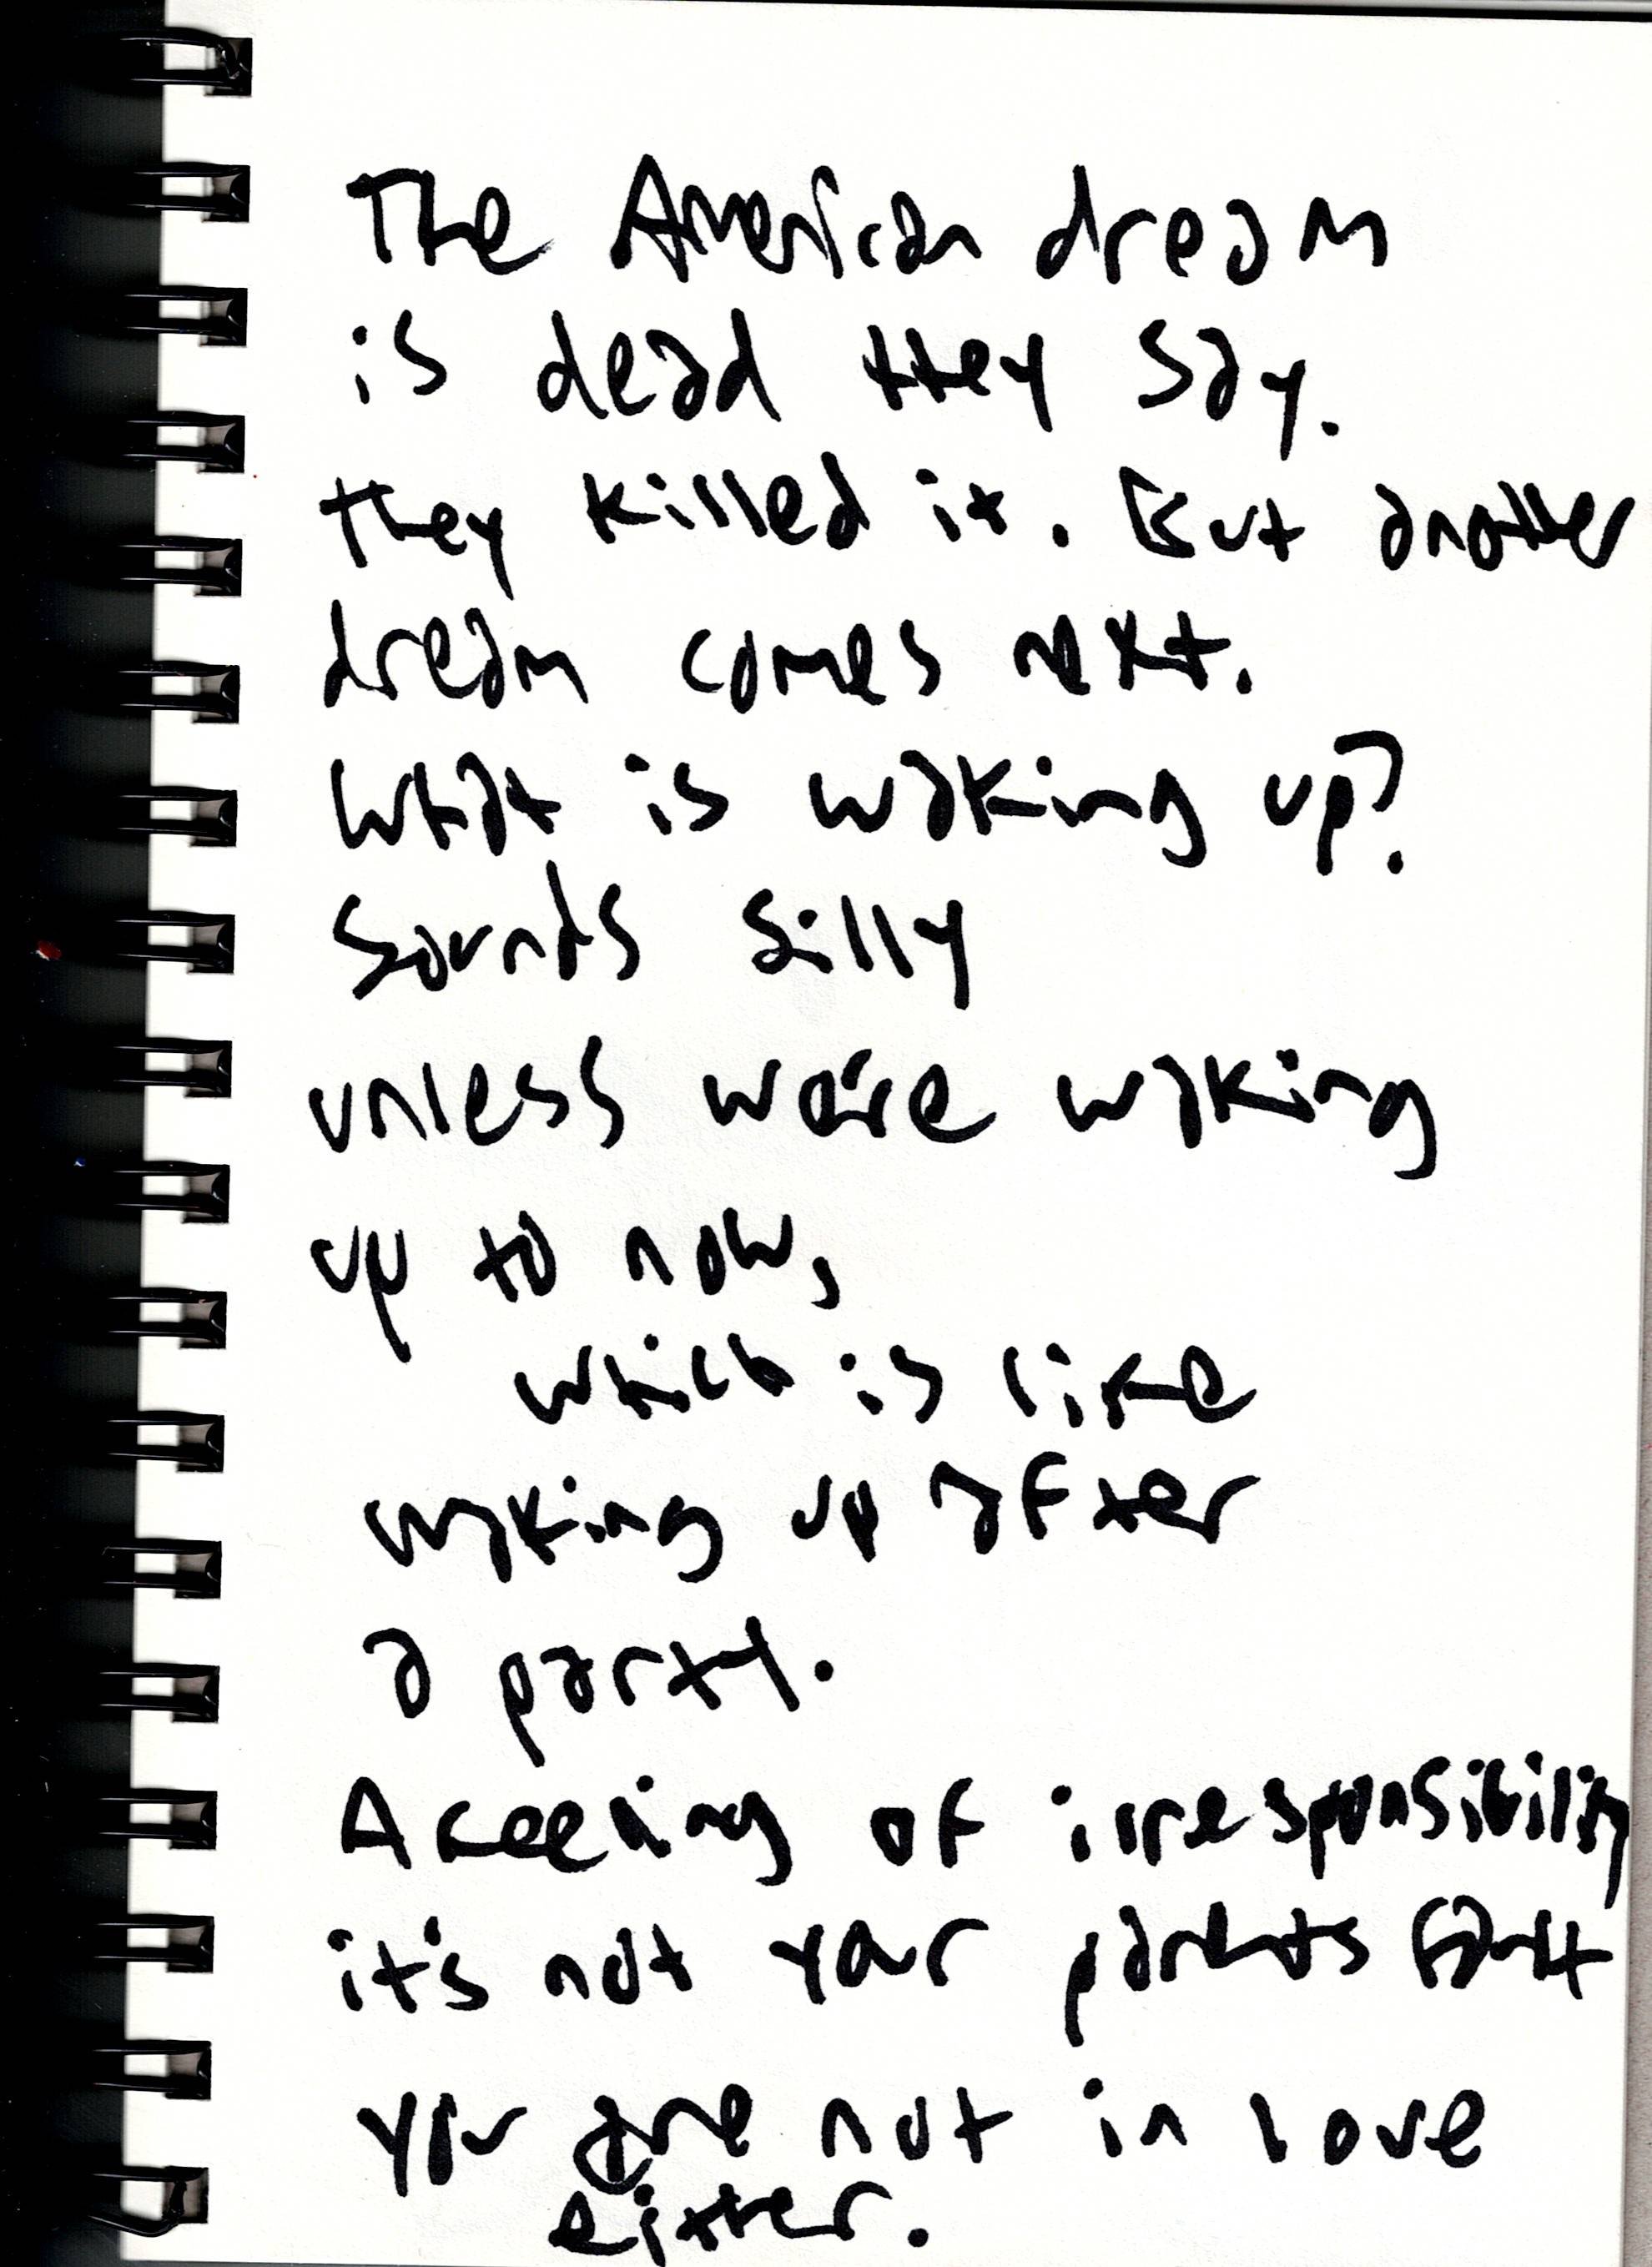 The American dream
is dead they say.
they killed it. But another
dream comes next.
What is waking up?
Sounds silly
unless we're waking
up to now,
which is like
waking up after
a party.
A feeling of irresponsibility
it's not your parents fault
you are not in love
either.